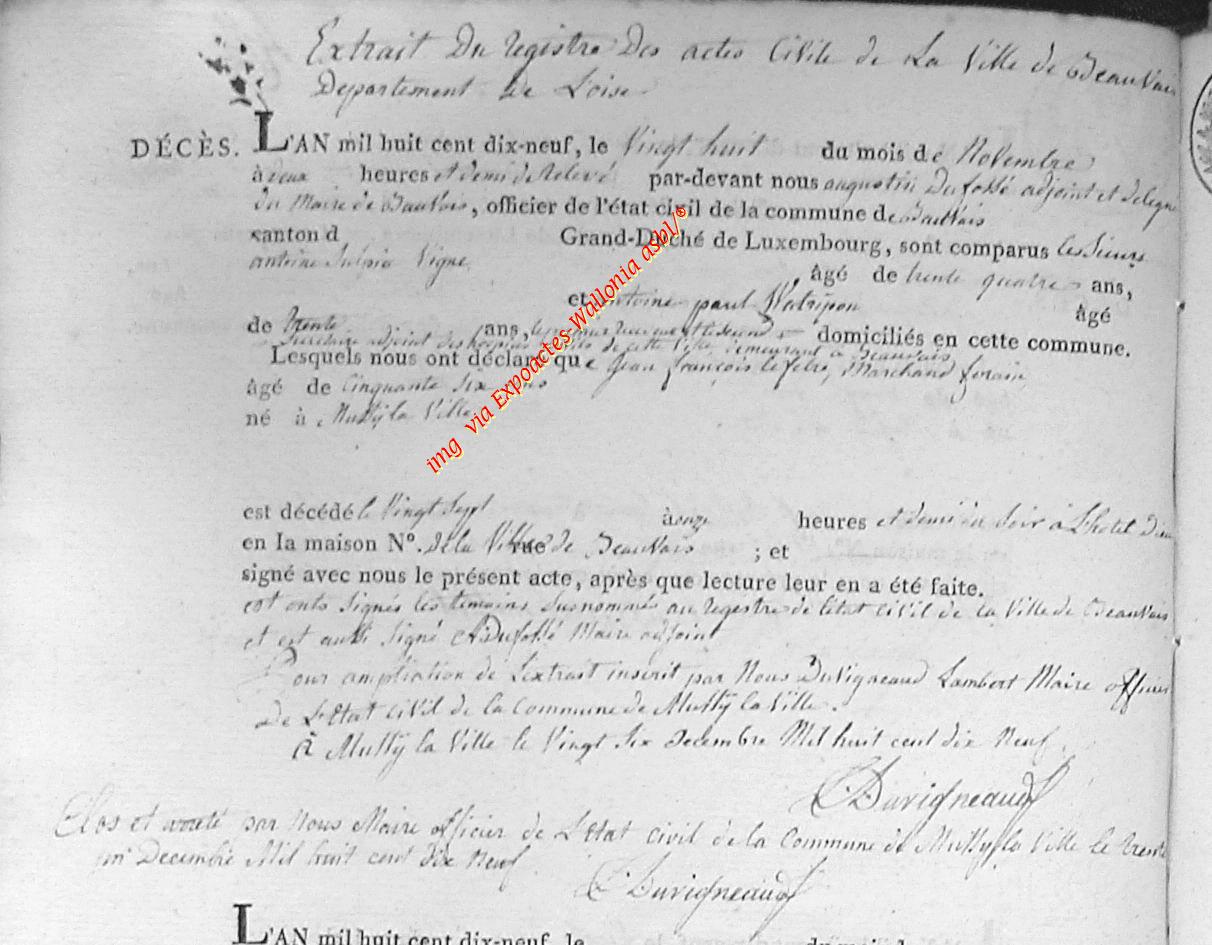 Extrait Du registre Des actes Civile de La Ville de Beauvais
Departement de L'oise
DÉCÈS. L'AN mil huit cent dix-neuf, le Vingt huit du mois de Novembre
à deux heures et demi de Relevé par-devant nous augustin Dufossé adjoint et delegue
du Maire de Bauvais, officier de l'état civil de la commune de Bauvais
canton d Grand-Duché de Luxembourg, sont comparus les Sieurs
antoine Vigne
, âgé de trente quatre ans,
et antoine paul Watripon âgé
de trente ans, domiciliés en cette commune.
Secretaire adjoint des hospices de cette Ville, demeurant à Beauvais
Lesquels nous ont déclaré que Jean françois lefebre, Marchand forain
âgé de Cinquante Six ans
né à Mussÿ la Ville
est décédé le Vingt Sept à onze heures et demi du Soir à L'hotel Dieu
en la maison N°. de la Ville rue de Beauvais ; et
signé avec nous le présent acte, après que lecture leur en a été faite.
est onts Signés les temoins Susnommés au regestre de l'état civil de la Ville de Beauvais
et est aussi Signé ADufossé Maire adjoint
Pour ampliation de L'extrait inscrit par Nous Duvigneaud Lambert Maire officier
De L'Etat civil de la Commune de Mussÿ la Ville.
À Mussÿ la Ville le Vingt Six Decembre Mil huit cent dix Neuf.
Duvigneaud
Clos et areté par Nous Maire officier de L'Etat civil de la Commune de Mussy la Ville le trente
Decembre Mil huit cent dix Neuf.
Duvigneaud
L'AN mil huit cent dix-neuf, le du mois d
img via Expoactes-Wallonia asbl/®